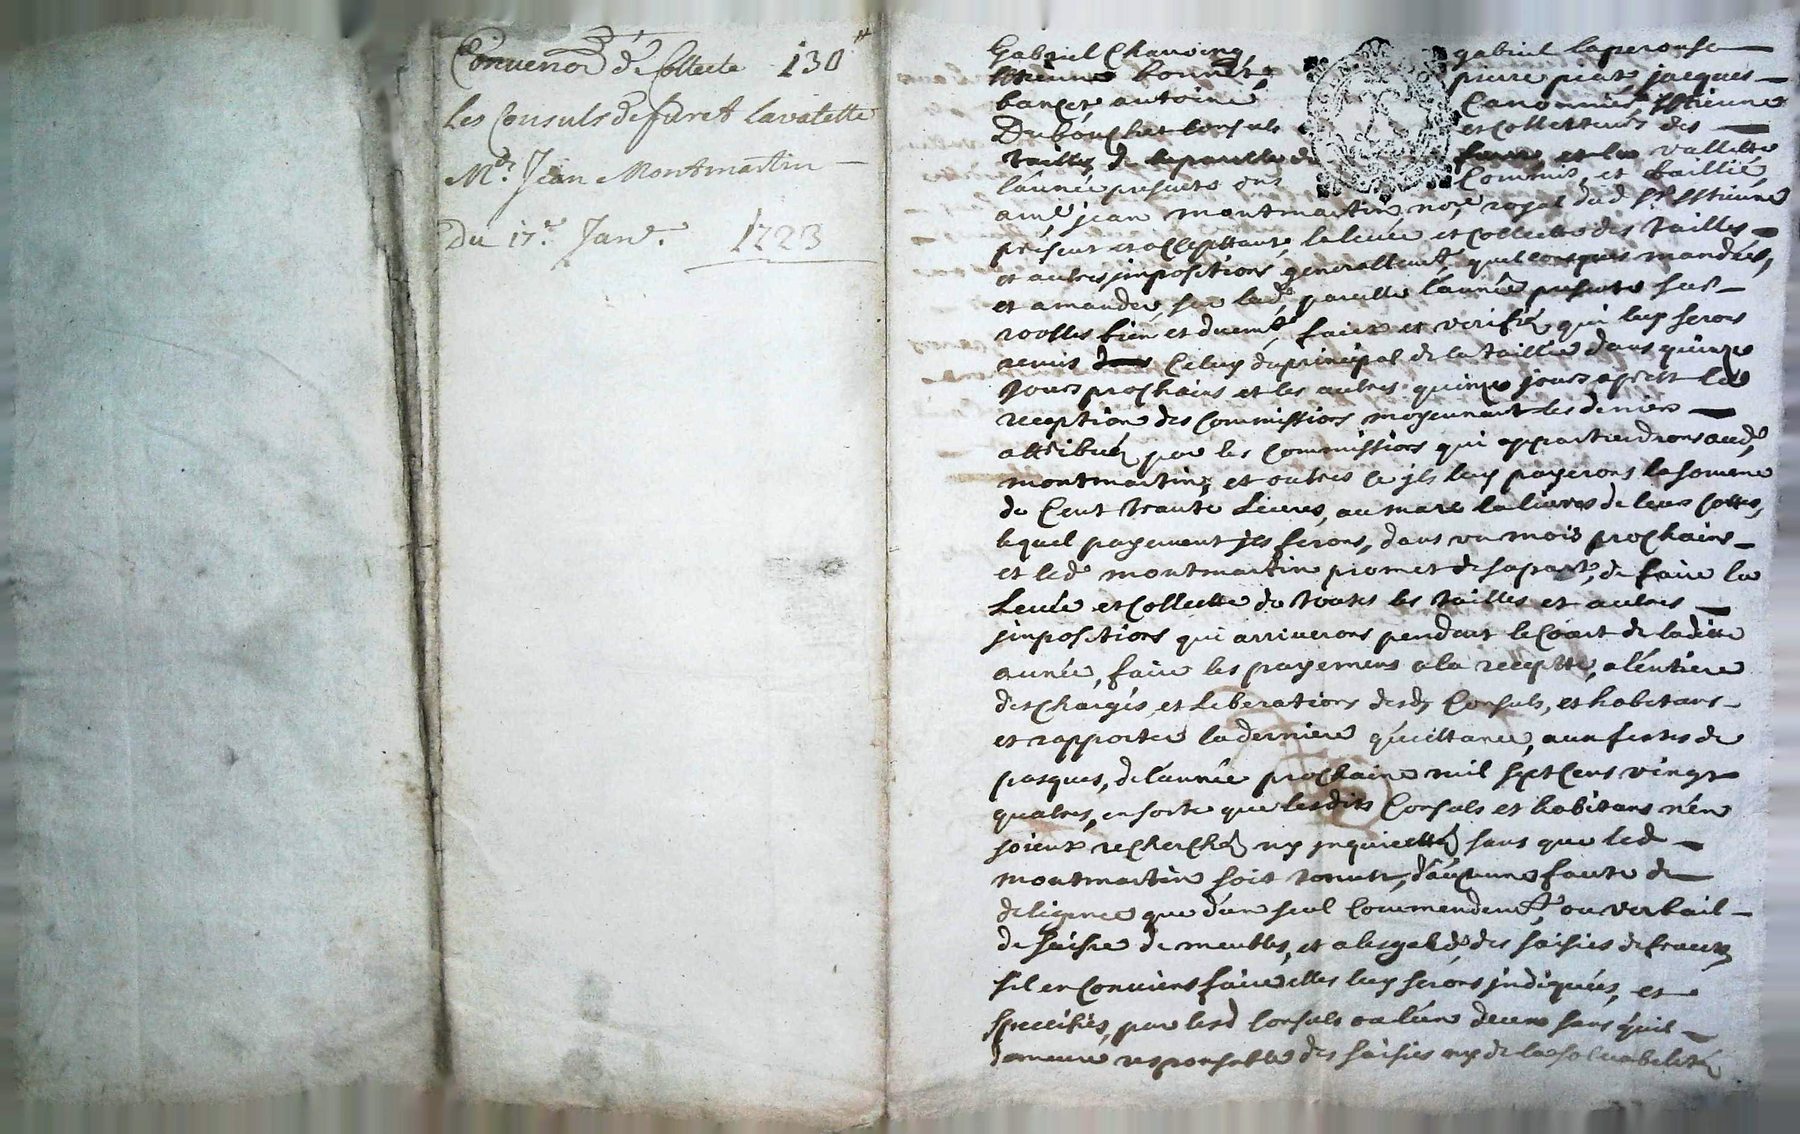 Convenon de Collecte 130tt
Les Consuls de furet lavalette
Mr. Jean Montmartin
Du 17e. Janv. 1723
Gabriel gabriel laperouse
Estienne bonnet pierre piat jacques
bancet antoine Canonnier Estienne
Dubouchet Consuls et Collecteurs des
tailles de laparelle de furet et la vallette
l'année presente ont Commis, et baillié,
a me. jean montmartin nore. royal dud. St. Estienne
présent et acceptant, la levée et Collecte des tailles,
et autres impositions, generallemt. quelconques mandées,
et a mander, sur lade. parcelle l'année presente sur
roolles bien et duemt. faits et verifiés qui luy seront
remis Celuy du principal de la taillie dans quinze
jours prochains et les autres quinze jours apres la
reception des Commissions moyennant les deniers
attribués par les Commissions qui appartiendront aud.
montmartin, et outres ce jls luy payeront la somme
de Cent trante Livres, au marc la livres de leurs Cottes,
lequel payement jls feront, dans un mois prochains
et led. montmartin promet de sa part, de faire la
Levée et Collecte de toutes les tailles et autres
jmpositions qui arriveront pendant le Court de ladite
année, faire les payemens a la recepte, a l'entiere
descharges et Liberations desds. Consuls, et habitans
et rapporter la derniere quiettance, aux festes de
pasques, de l'année prochaine mil sept Cens vingt
quatres, en sorte que lesdits Consuls et habitans n'en
soient recherchés ny jnquiettés sans que led
montmartin soit tenut, d'auqune faute de
deligence que d'un seul Commendemt. ou verbail
de saisie de meubles, et a l'esgard des saisies de fruits
s'il en Convient faire elles luy seront jndiquées, et
speciffiés, par lesd Consuls ou l'un deux sans quil
demeure responsable des saisies ny de la solvabelité